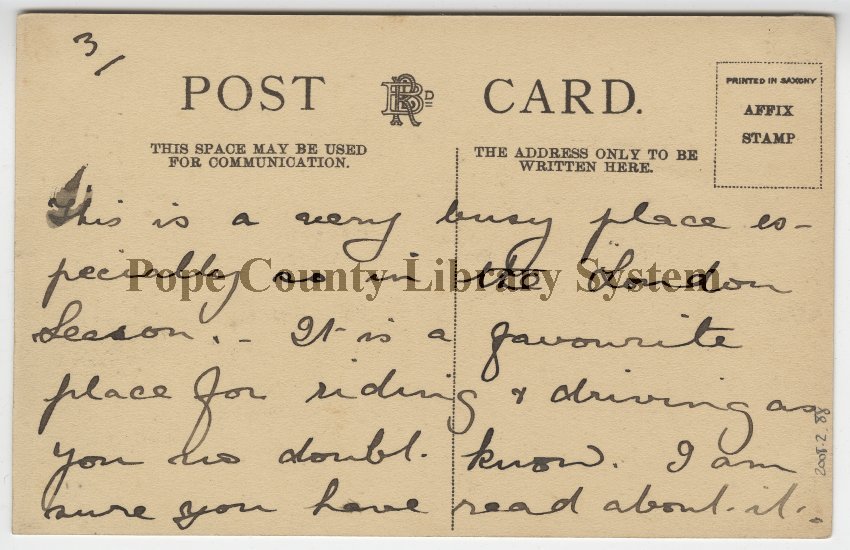 3/
POST CARD.
PRINTED IN SAXONY
AFFIX
STAMP
THIS SPACE MAY BE USED
FOR COMMUNICATION.
THE ADDRESS ONLY TO BE
WRITTEN HERE.
This is a very busy place es-
pecially so in the London
Season. - It is a favourite
place for riding & driving as
you no doubt know. I am
sure you have read about it.
Pope County Library System
2008.2.88